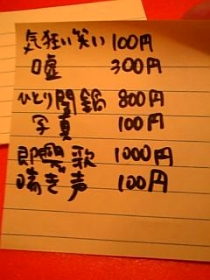 気狂い笑い 100円
嘘 300円
ひとり闇鍋 800円
写真 100円
即興歌 1000円
喘ぎ声 100円